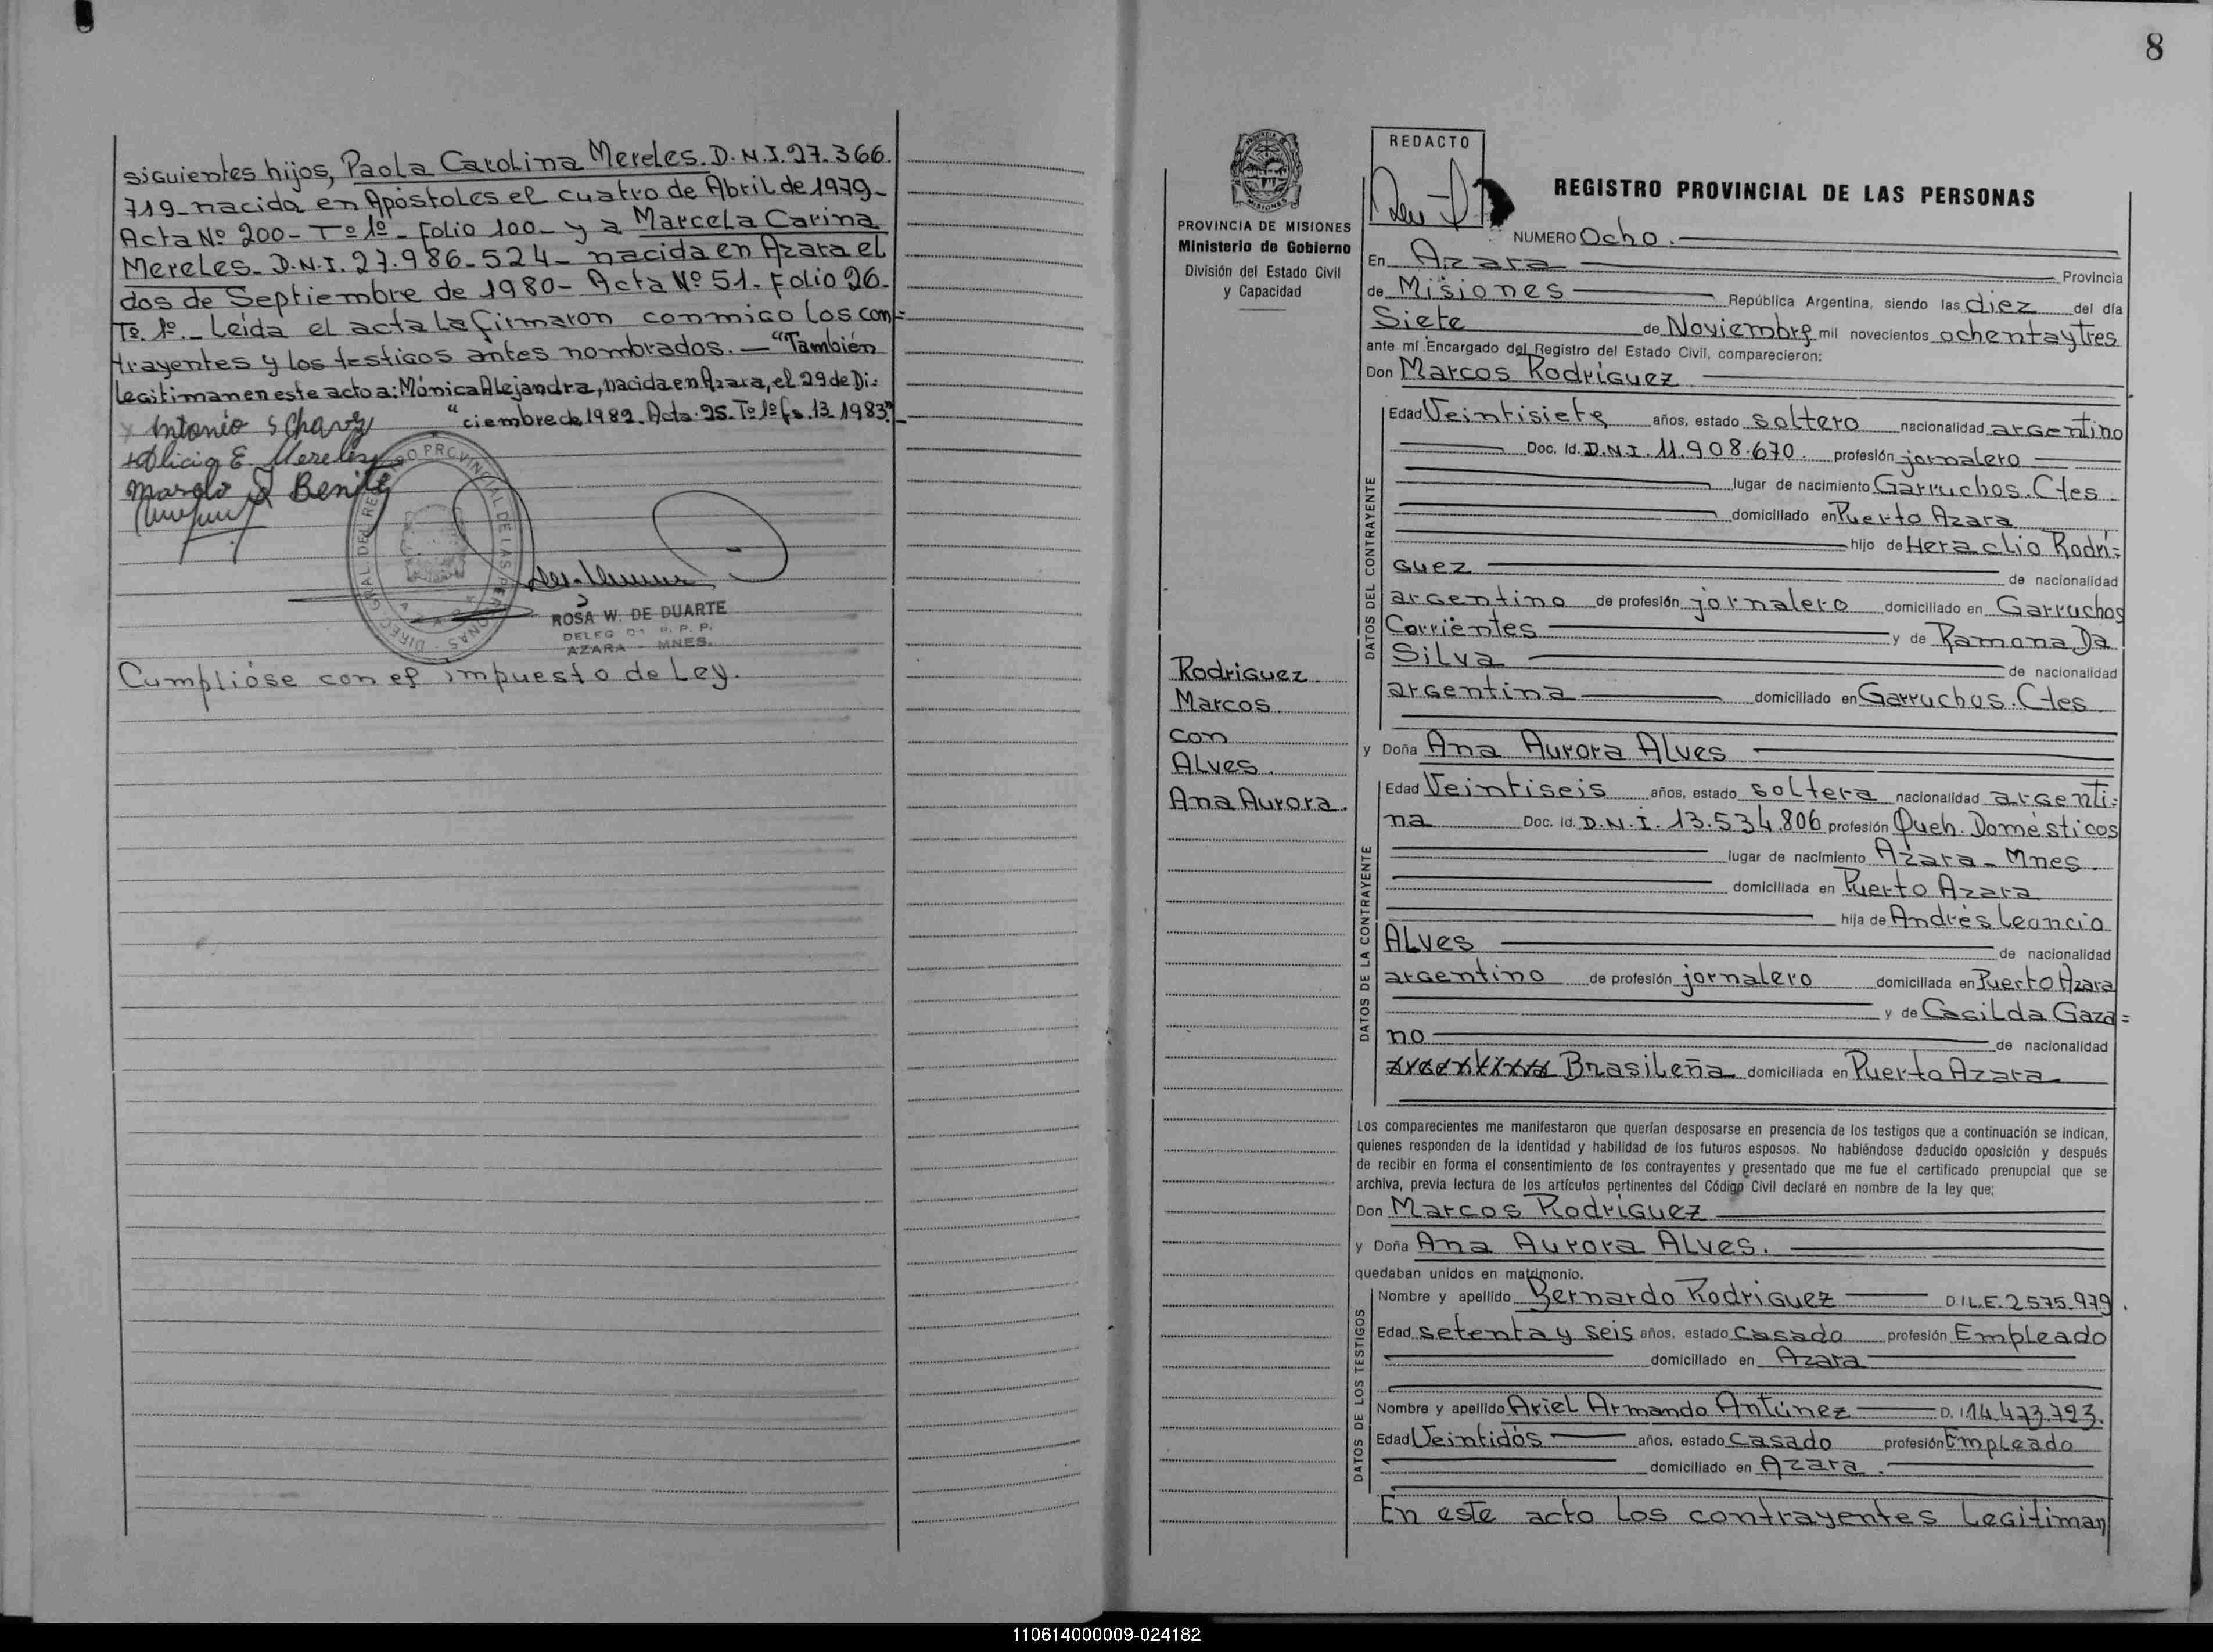 siguientes hijos, Paola Carolina Mereles. D.N.I. 27.366.
719- nacida en Apóstoles el cuatro de Abril de 1979-
Acta Nº 200- Tº 1º- Folio 100- y a Marcela Carina
Mereles- D.N.I. 27.986.524- nacida en Azara el
dos de Septiembre de 1980- Acta Nº 51- Folio 26-
Tº. 1º.- Leida el acta la firmaron conmigo los con-
trayentes y los testigos antes nombrados.- "También
legitiman en este acto a: Mónica Alejandra, nacida en Azara, el 29 de Di-
"ciembre de 1982. Acta. 25. Tº 1º fs. 13. 1983"
Antonio S Chavez
Alicia E. Mereles
Marcelo Benitez
DIREC. GRAL. DEL REGISTRO PROVINCIAL DE LAS PERSONAS
ROSA W. DE DUARTE
DELEG R. P. P.
AZARA - MNES.
Cumplióse con el impuesto de Ley.
8
PROVINCIA DE MISIONES
Ministerio de Gobierno
División del Estado Civil
y Capacidad
Rodriguez
Marcos
con
Alves.
Ana Aurora.
REDACTO
REGISTRO PROVINCIAL DE LAS PERSONAS
NUMERO Ocho.
En Azara Provincia
de Misiones República Argentina, siendo las diez del día
Siete de Noviembre mil novecientos ochentaytres
ante mí Encargado del Registro del Estado Civil, comparecieron:
Don Marcos Rodríguez
DATOS DEL CONTRAYENTE
Edad Veintisiete años, estado soltero nacionalidad argentino
Doc. Id. D.N.I. 11.908.670. profesión jornalero
lugar de nacimiento Garruchos. Ctes
domiciliado en Puerto Azara
hijo de Heraclio Rodrí-
guez de nacionalidad
argentino de profesión jornalero domiciliado en Garruchos
Corrientes y de Ramona Da
Silva de nacionalidad
argentina domiciliado en Garruchos. Ctes
y Doña Ana Aurora Alves
DATOS DE LA CONTRAYENTE
Edad Veintiseis años, estado soltera nacionalidad argenti-
na Doc. Id. D.N.I. 13.534.806 profesión Queh. Domésticos
lugar de nacimiento Azara - Mnes.
domiciliada en Puerto Azara
hija de Andrés Leoncio
Alves de nacionalidad
argentino de profesión jornalero domiciliada en Puerto Azara
y de Casilda Gaza-
no de nacionalidad
Brasileña domiciliada en Puerto Azara
Los comparecientes me manifestaron que querían desposarse en presencia de los testigos que a continuación se indican,
quienes responden de la identidad y habilidad de los futuros esposos. No habiéndose deducido oposición y después
de recibir en forma el consentimiento de los contrayentes y presentado que me fue el certificado prenupcial que se
archiva, previa lectura de los artículos pertinentes del Código Civil declaré en nombre de la ley que;
Don Marcos Rodríguez
y Doña Ana Aurora Alves.
quedaban unidos en matrimonio.
DATOS DE LOS TESTIGOS
Nombre y apellido Bernardo Rodriguez D.I. L.E. 2.575.979.
Edad setenta y seis años, estado casado profesión Empleado
domiciliado en Azara
Nombre y apellido Ariel Armando Antúnez D. I. 14.473.793.
Edad Veintidós años, estado casado profesión Empleado
domiciliado en Azara.
En este acto los contrayentes legitiman
110614000009-024182